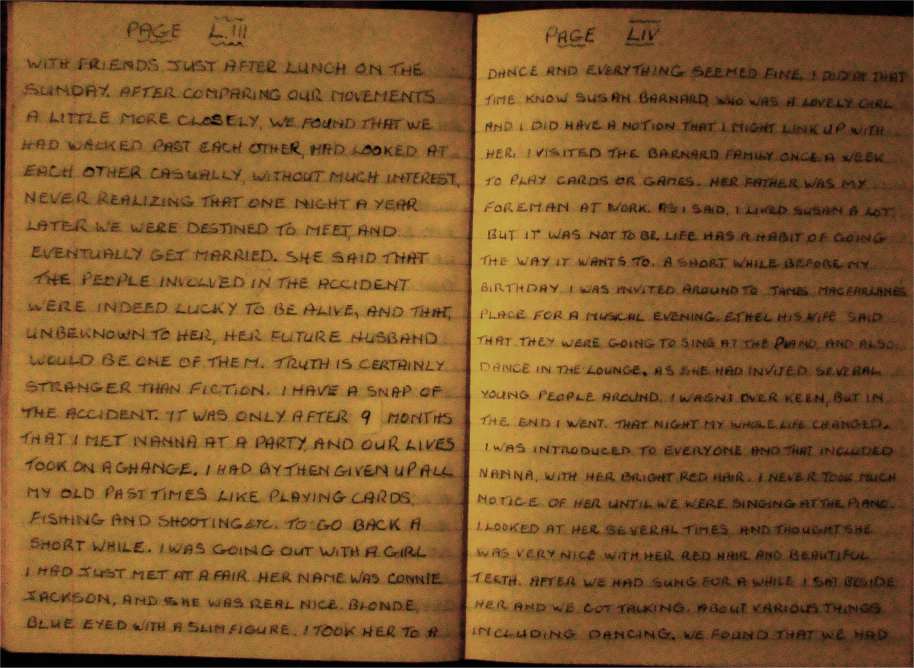 PAGE L.III
WITH FRIENDS JUST AFTER LUNCH ON THE
SUNDAY. AFTER COMPARING OUR MOVEMENTS
A LITTLE MORE CLOSELY, WE FOUND THAT WE
HAD WALKED PAST EACH OTHER, HAD LOOKED AT
EACH OTHER CASUALLY, WITHOUT MUCH INTEREST,
NEVER REALIZING THAT ONE NIGHT A YEAR
LATER WE WERE DESTINED TO MEET, AND
EVENTUALLY GET MARRIED. SHE SAID THAT
THE PEOPLE INVOLVED IN THE ACCIDENT
WERE INDEED LUCKY TO BE ALIVE, AND THAT,
UNBEKNOWN TO HER, HER FUTURE HUSBAND
WOULD BE ONE OF THEM. TRUTH IS CERTAINLY
STRANGER THAN FICTION. I HAVE A SNAP OF
THE ACCIDENT. IT WAS ONLY AFTER 9 MONTHS
THAT I MET NANNA AT A PARTY, AND OUR LIVES
TOOK ON A CHANGE. I HAD BY THEN GIVEN UP ALL
MY OLD PAST TIMES LIKE PLAYING CARDS,
FISHING AND SHOOTING ETC. TO GO BACK A
SHORT WHILE. I WAS GOING OUT WITH A GIRL
I HAD JUST MET AT A FAIR. HER NAME WAS CONNIE
JACKSON, AND SHE WAS REAL NICE. BLONDE,
BLUE EYED WITH A SLIM FIGURE. I TOOK HER TO A
PAGE LIV
DANCE AND EVERYTHING SEEMED FINE. I DID AT THAT
TIME KNOW SUSAN BARNARD, WHO WAS A LOVELY GIRL
AND I DID HAVE A NOTION THAT I MIGHT LINK UP WITH
HER. I VISITED THE BARNARD FAMILY ONCE A WEEK
TO PLAY CARDS OR GAMES. HER FATHER WAS MY
FOREMAN AT WORK. AS I SAID, I LIKED SUSAN A LOT
BUT IT WAS NOT TO BE. LIFE HAS A HABIT OF GOING
THE WAY IT WANTS TO. A SHORT WHILE BEFORE MY
BIRTHDAY. I WAS INVITED AROUND TO JAMES MACFARLANES
PLACE FOR A MUSICAL EVENING. ETHEL HIS WIFE SAID
THAT THEY WERE GOING TO SING AT THE PIANO AND ALSO
DANCE IN THE LOUNGE, AS SHE HAD INVITED SEVERAL
YOUNG PEOPLE AROUND. I WASN'T OVER KEEN, BUT IN
THE END I WENT. THAT NIGHT MY WHOLE LIFE CHANGED.
I WAS INTRODUCED TO EVERYONE AND THAT INCLUDED
NANNA, WITH HER BRIGHT RED HAIR. I NEVER TOOK MUCH
NOTICE OF HER UNTIL WE WERE SINGING AT THE PIANO.
I LOOKED AT HER SEVERAL TIMES AND THOUGHT SHE
WAS VERY NICE WITH HER RED HAIR AND BEAUTIFUL
TEETH. AFTER WE HAD SUNG FOR A WHILE I SAT BESIDE
HER AND WE GOT TALKING. ABOUT VARIOUS THINGS
INCLUDING DANCING. WE FOUND THAT WE HAD